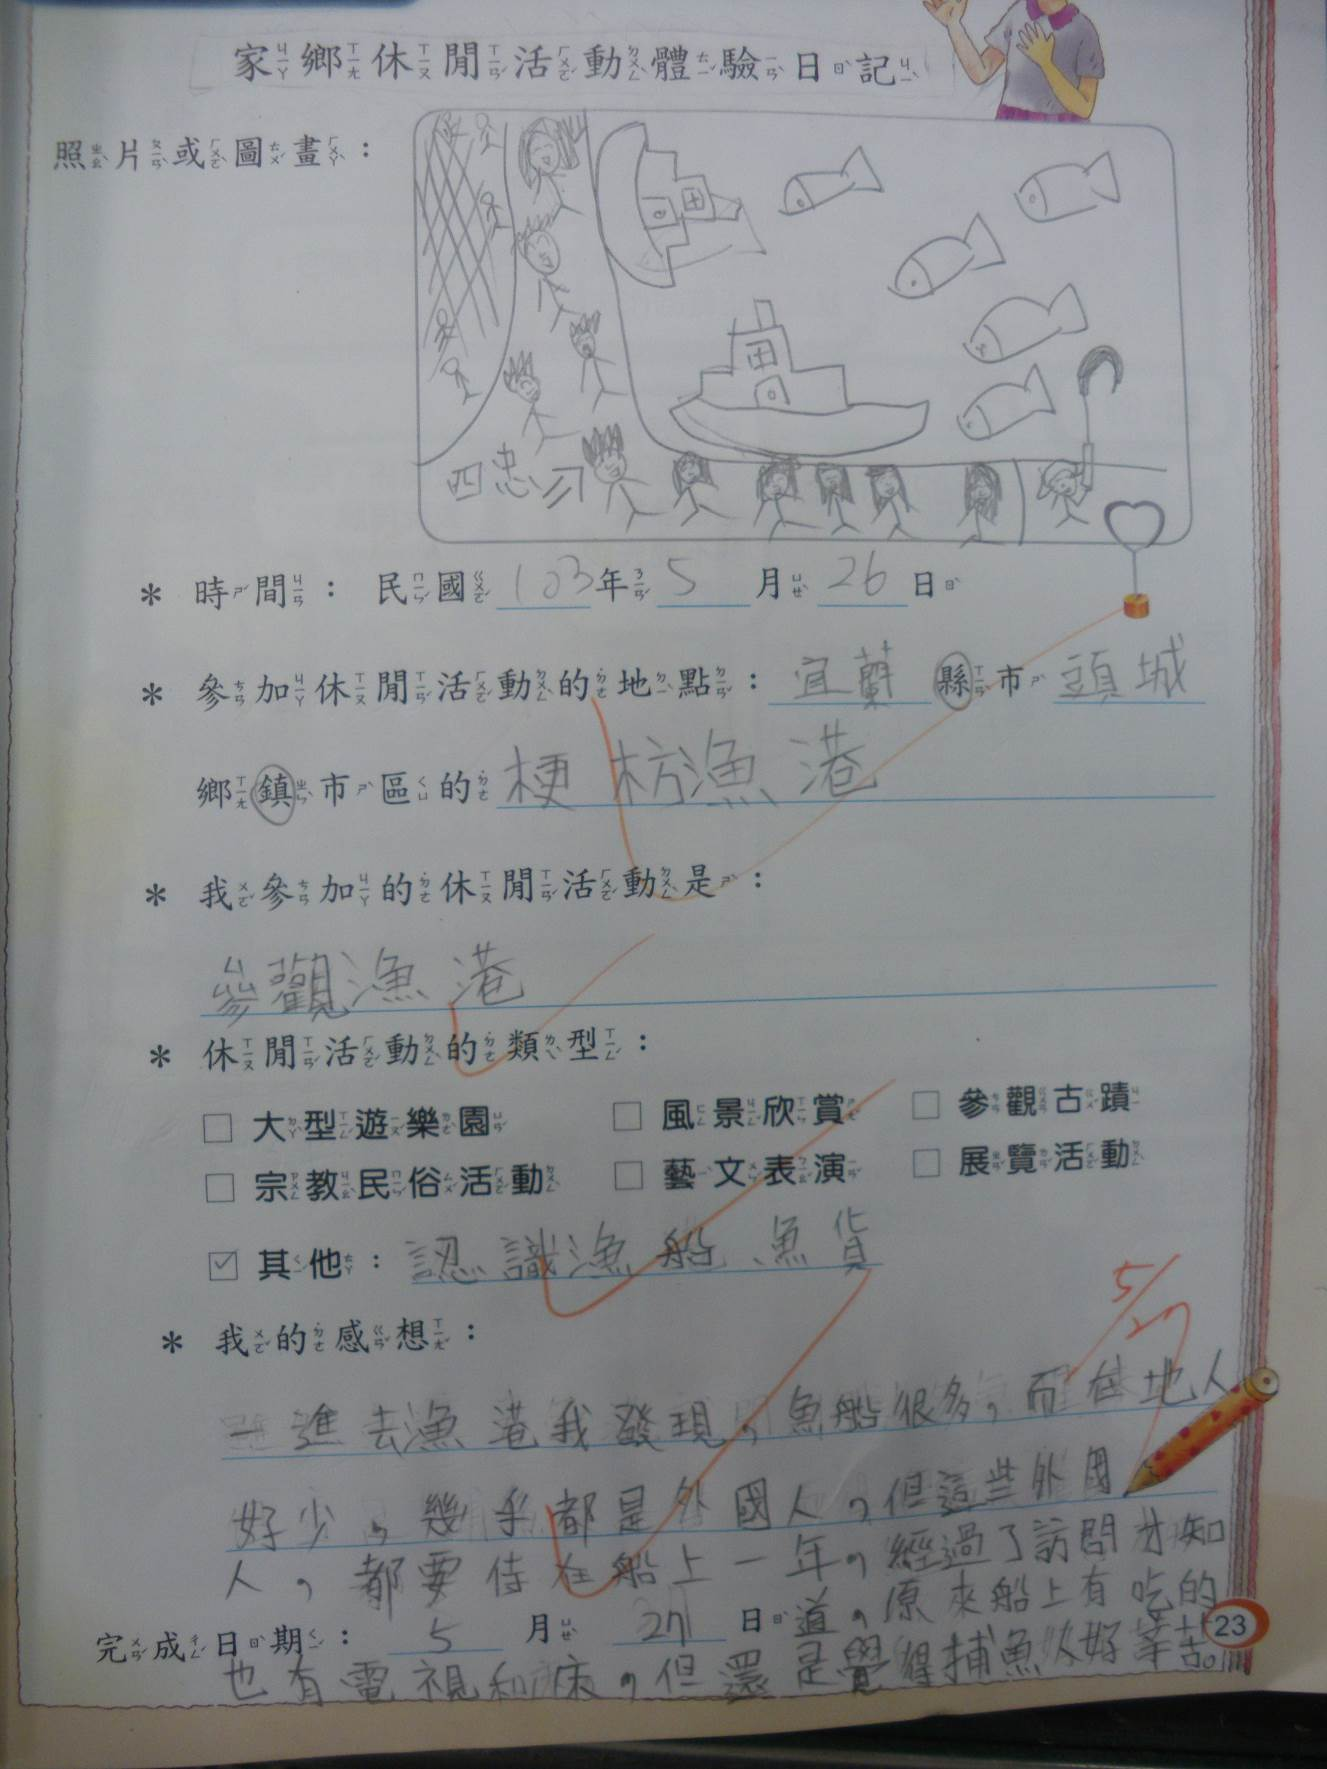 家鄉休閒活動體驗日記
照片或圖畫：
四忠
＊時間：民國103年5月26日
＊參加休閒活動的地點：宜蘭縣市頭城
鄉鎮市區的梗枋漁港
＊我參加的休閒活動是：
參觀漁港
＊休閒活動的類型：
□大型遊樂園 □風景欣賞 □參觀古蹟
□宗教民俗活動 □藝文表演 □展覽活動
☑其他：認識漁船、魚貨
5/27
＊我的感想：
一進去漁港我發現，魚船很多，而在地人
好少，幾乎都是外國人，但這些外國
人，都要待在船上一年，經過了訪問才知
道，原來船上有吃的
也有電視和床，但還是覺得捕魚人好辛苦。
完成日期：5月27日
23